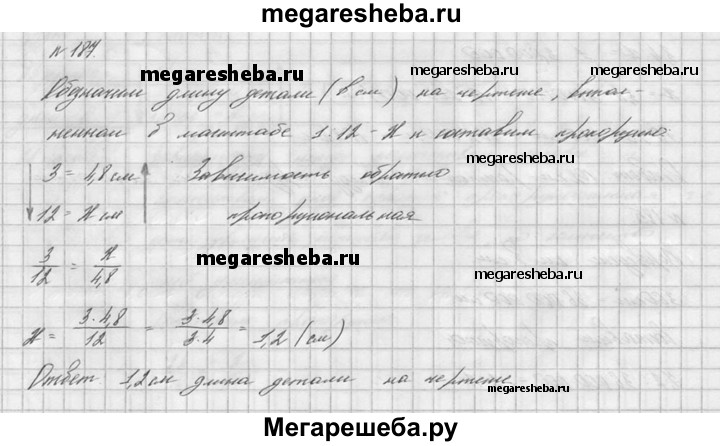 megaresheba.ru
n 184.
megaresheba.ru
megaresheba.ru
Обозначим длину детали (в см) на чертеже, выпол-
ненном в масштабе 1:12 - X и составим пропорцию:
megaresheba.ru
3 = 4,8 см Зависимость обратно
12 = X см пропорциональная
3/12 = X/4,8
megaresheba.ru
megaresheba.ru
X = 3·4,8/12 = 3·4,8/3·4 = 1,2 (см)
Ответ 1,2 см длина детали на чертеже
megaresheba.ru
Мегарешеба.ру